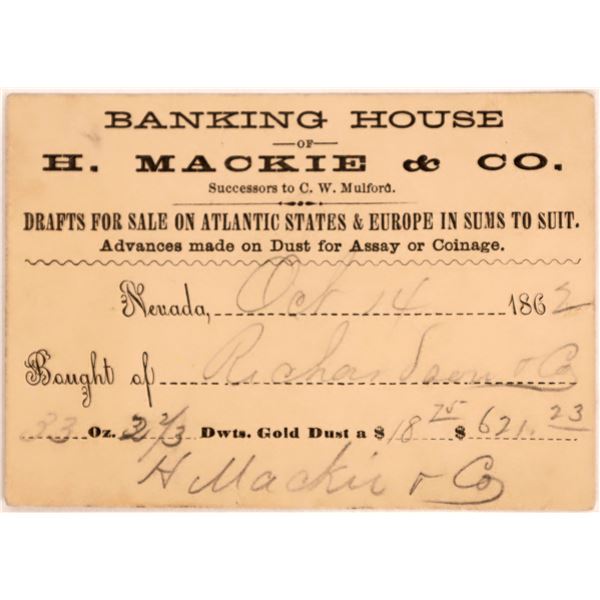 BANKING HOUSE
OF
H. MACKIE & CO.
Successors to C. W. Mulford.
DRAFTS FOR SALE ON ATLANTIC STATES & EUROPE IN SUMS TO SUIT.
Advances made on Dust for Assay or Coinage.
Nevada, Oct 14 1862
Bought of Richardson & Co
33 Oz. 2 2/3 Dwts. Gold Dust a $ 18 75 $ 621.23
H Mackie & Co